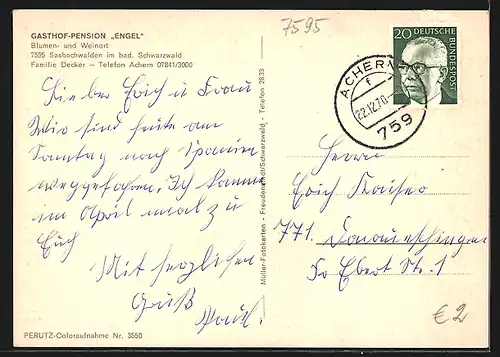 7595
GASTHOF-PENSION „ENGEL"
Blumen- und Weinort
7595 Sasbachwalden im bad. Schwarzwald
Familie Decker – Telefon Achern 07841/3000
Lieber Erich u Frau
Wir sind heute am
Sonntag nach Spanien
weggefahren. Ich komme
im April mal zu
Euch
Mit herzlichen
Gruß
Paul.
PERUTZ-Coloraufnahme Nr. 3550
Müller-Fotokarten - Freudenstadt/Schwarzwald - Telefon 2833
20 DEUTSCHE
BUNDESPOST
ACHERN
f
22.12.70
759
Herrn
Erich Kaiser
771. Donaueschingen
Fr Ebert Str. 1
€2